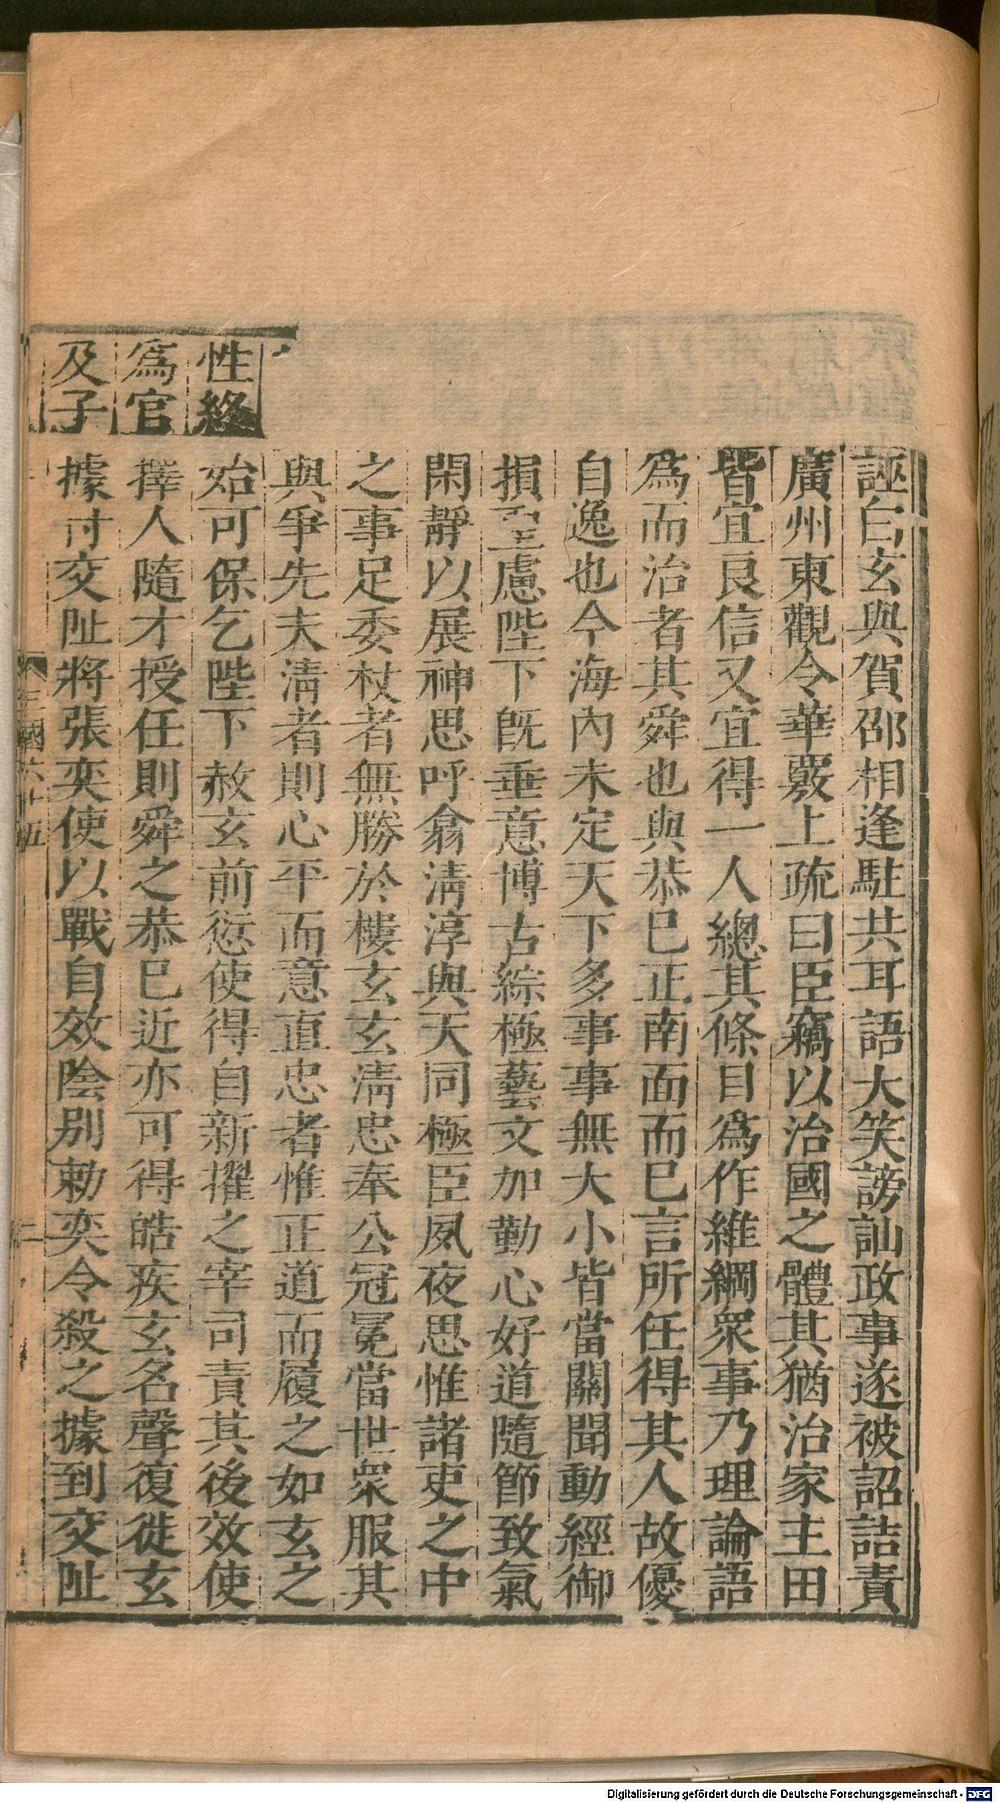 誣白玄與賀邵相逢駐共耳語大笑謗訕政事遂被詔詰責
廣州東觀令華覈上疏曰臣竊以治國之體其猶治家主田
皆宜良信又宜得一人總其條目爲作維綱衆事乃理論語
爲而治者其舜也與恭已正南面而已言所任得其人故優
自逸也今海內未定天下多事事無大小皆當關聞動經御
損聖慮陛下旣垂意博古綜極藝文加勤心好道隨節致氣
閑靜以展神思呼翕淸淳與天同極臣夙夜思惟諸吏之中
之事足委杖者無勝於樓玄玄淸忠奉公冠冕當世衆服其
與爭先夫淸者則心平而意直忠者惟正道而履之如玄之
性終
始可保乞陛下赦玄前愆使得自新擢之宰司責其後效使
爲官
擇人隨才授任則舜之恭已近亦可得皓疾玄名聲復徙玄
及子
據付交阯將張奕使以戰自效陰別勅奕令殺之據到交阯
三國六十五
二
Digitalisierung gefördert durch die Deutsche Forschungsgemeinschaft - DFG